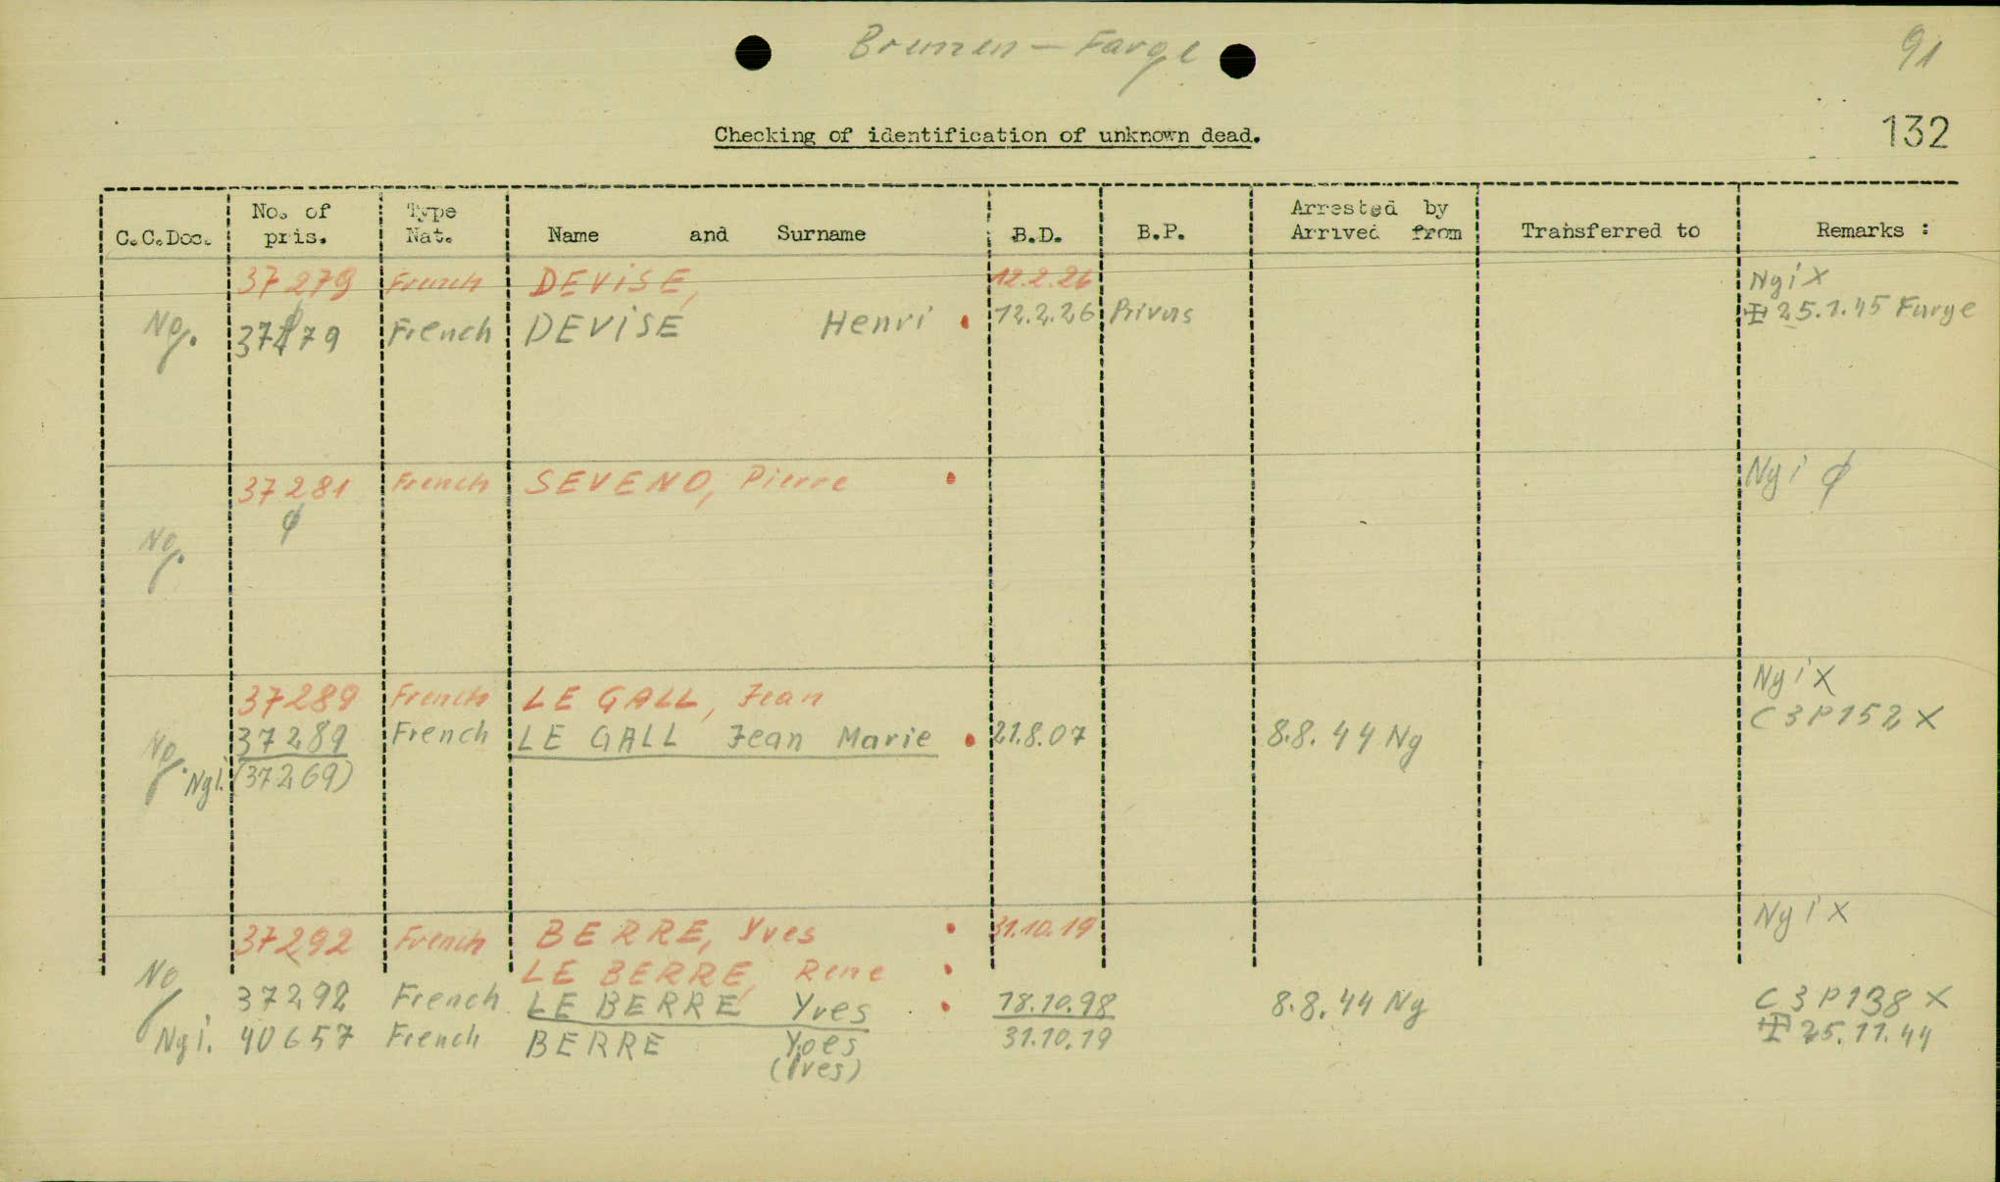 Bremen – Farge
91
Checking of identification of unknown dead.
132
C.C.Doc. No. of pris. Type Nat. Name and Surname B.D. B.P. Arrested by Arrived from Transferred to Remarks :
37279 French DEVISE, 12.2.26 Ngi X
Ng. 37179 French DEVISE Henri • 12.2.26 Privas ⊞ 25.1.45 Farge
37281 French SEVENO, Pierre • Ngi ∅
∅
Ng.
37289 French LE GALL, Jean Ngi X
Ng. 37289 French LE GALL Jean Marie • 21.8.07 8.8.44 Ng C3P152 X
Ngi. (37269)
37292 French BERRE, Yves • 31.10.19 Ngi X
LE BERRE, Rene •
Ng 37292 French LE BERRE Yves • 18.10.98 8.8.44 Ng C3P138 X
Ngi. 40657 French BERRE Yoes 31.10.19 ⊞ 25.11.44
(Ives)